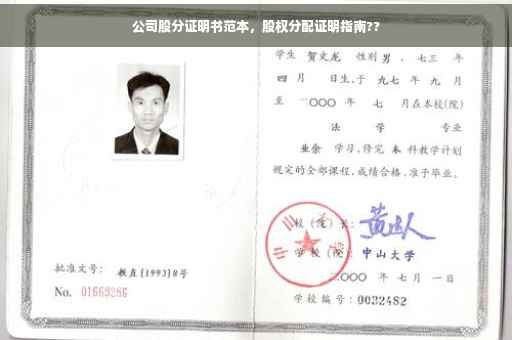 公司股分证明书范本，股权分配证明指南??
学生 贺文龙 性别 男 、七三 年
四 月 日生,于 九七 年 九 月
至 二〇〇〇 年 七 月在本校(院)
法 学 专业
业余 学习,修完 本 科教学计划
规定的全部课程,成绩合格,准予毕业。
校（院）长:
学校（院）: 中山大学
二〇〇〇 年 七 月 一 日
学校编号: 0032482
批准文号: 教直[1993]8号
No. 01663286